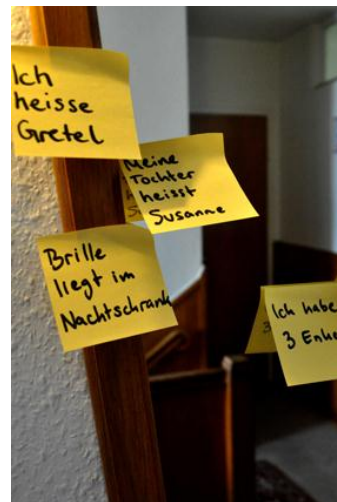 Ich
heisse
Gretel
Meine
Tochter
heisst
Susanne
Brille
liegt im
Nachtschrank
Ich habe
3 Enke